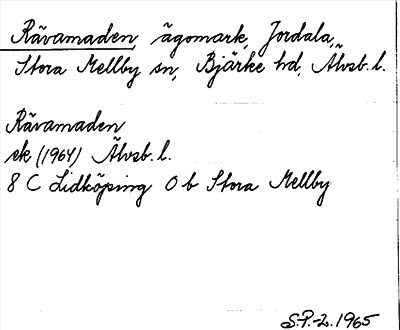 Rävamaden, ägomark, Jordala,
Stora Mellby sn, Bjärke hd, Älvsb. l.
Rävamaden
ek (1964) Älvsb. l.
8 C Lidköping 0 b Stora Mellby
S.P.-L. 1965